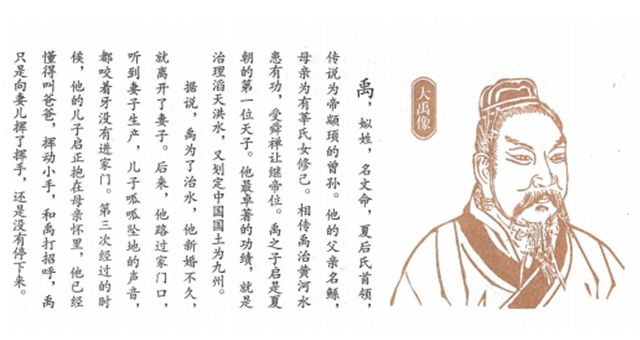 大禹像
禹，姒姓，名文命，夏后氏首领，
传说为帝颛顼的曾孙。他的父亲名鲧，
母亲为有莘氏女修己。相传禹治黄河水
患有功，受舜禅让继帝位。禹之子启是夏
朝的第一位天子。他最卓著的功绩，就是
治理滔天洪水，又划定中国国土为九州。
据说，禹为了治水，他新婚不久，
就离开了妻子。后来，他路过家门口，
听到妻子生产，儿子呱呱坠地的声音，
都咬着牙没有进家门。第三次经过的时
候，他的儿子启正抱在母亲怀里，他已经
懂得叫爸爸，挥动小手，和禹打招呼，禹
只是向妻儿挥了挥手，还是没有停下来。